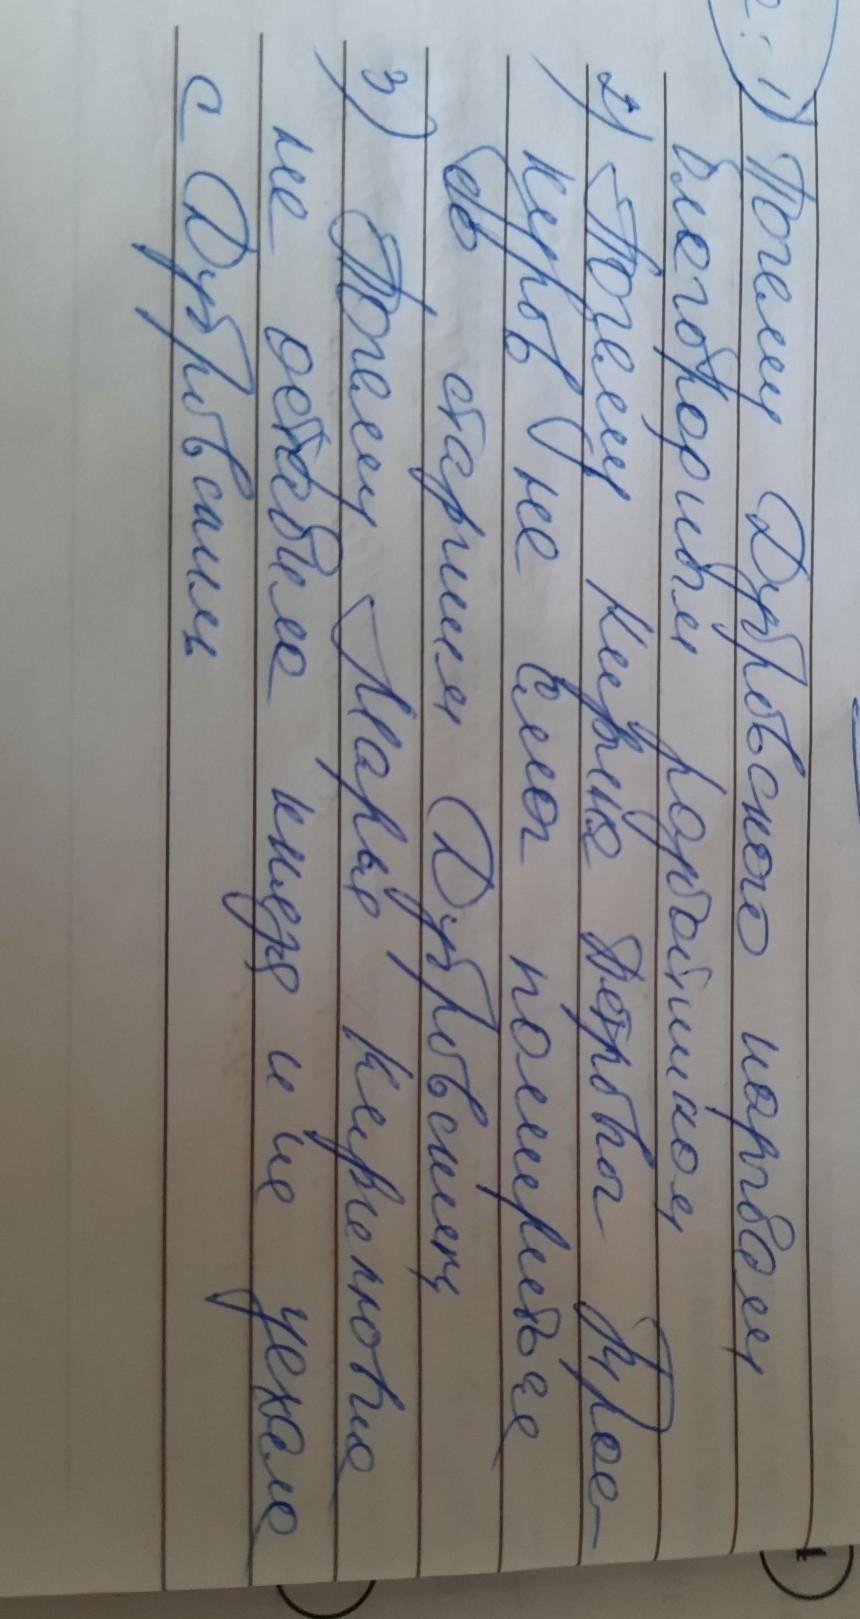 1) Почему Дубровского называли
благородным разбойником
2) Почему Кирила Петрович Трое-
куров не смог помириться
со старшим Дубровским
3) Почему Марья Кириловна
не оставила князя и не уехала
с Дубровским